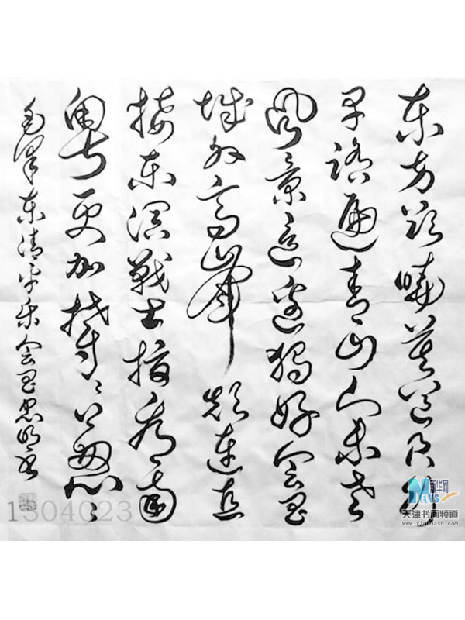 东方欲晓莫道君行
早踏遍青山人未老
风景这边独好会昌
城外高峰颠连直
接东溟戰士指看南
粤更加郁〻葱〻
毛泽东清平乐会昌
1304023
NEWS
新华网
天津书画频道